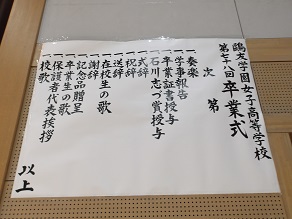 鷗友学園女子高等学校
第七十八回 卒業式
次第
一、奏楽
一、学事報告
一、卒業証書授与
一、石川志づ賞授与
一、式辞
一、祝辞
一、送辞
一、在校生の歌
一、謝辞
一、記念品贈呈
一、卒業生の歌
一、保護者代表挨拶
一、校歌
以上